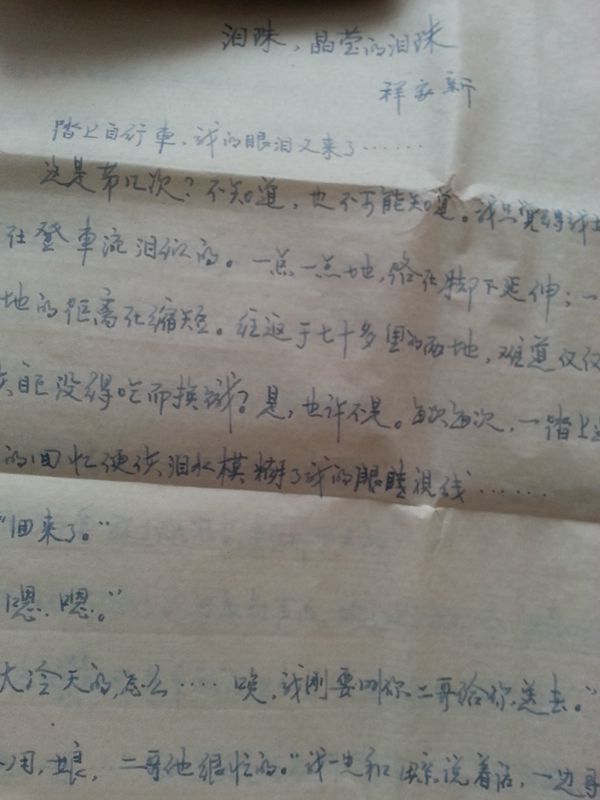 泪珠，晶莹的泪珠
祥家新
踏上自行車，我的眼泪又来了……
这是第几次？不知道，也不可能知道。我只觉得我
在登車流泪似的。一点一点地，路在脚下延伸；一
地的距离在缩短。往返于七十多里的两地，难道仅仅
自己没得吃而换钱？是，也许不是。每次每次，一踏上
的回忆便使泪水模糊了我的眼睛視线……
"回来了。"
嗯，嗯。"
大冷天的，怎么……唉，我刚要叫你二哥给你送去。"
用，娘，二哥他很忙的。"我一边和娘说着话，一边